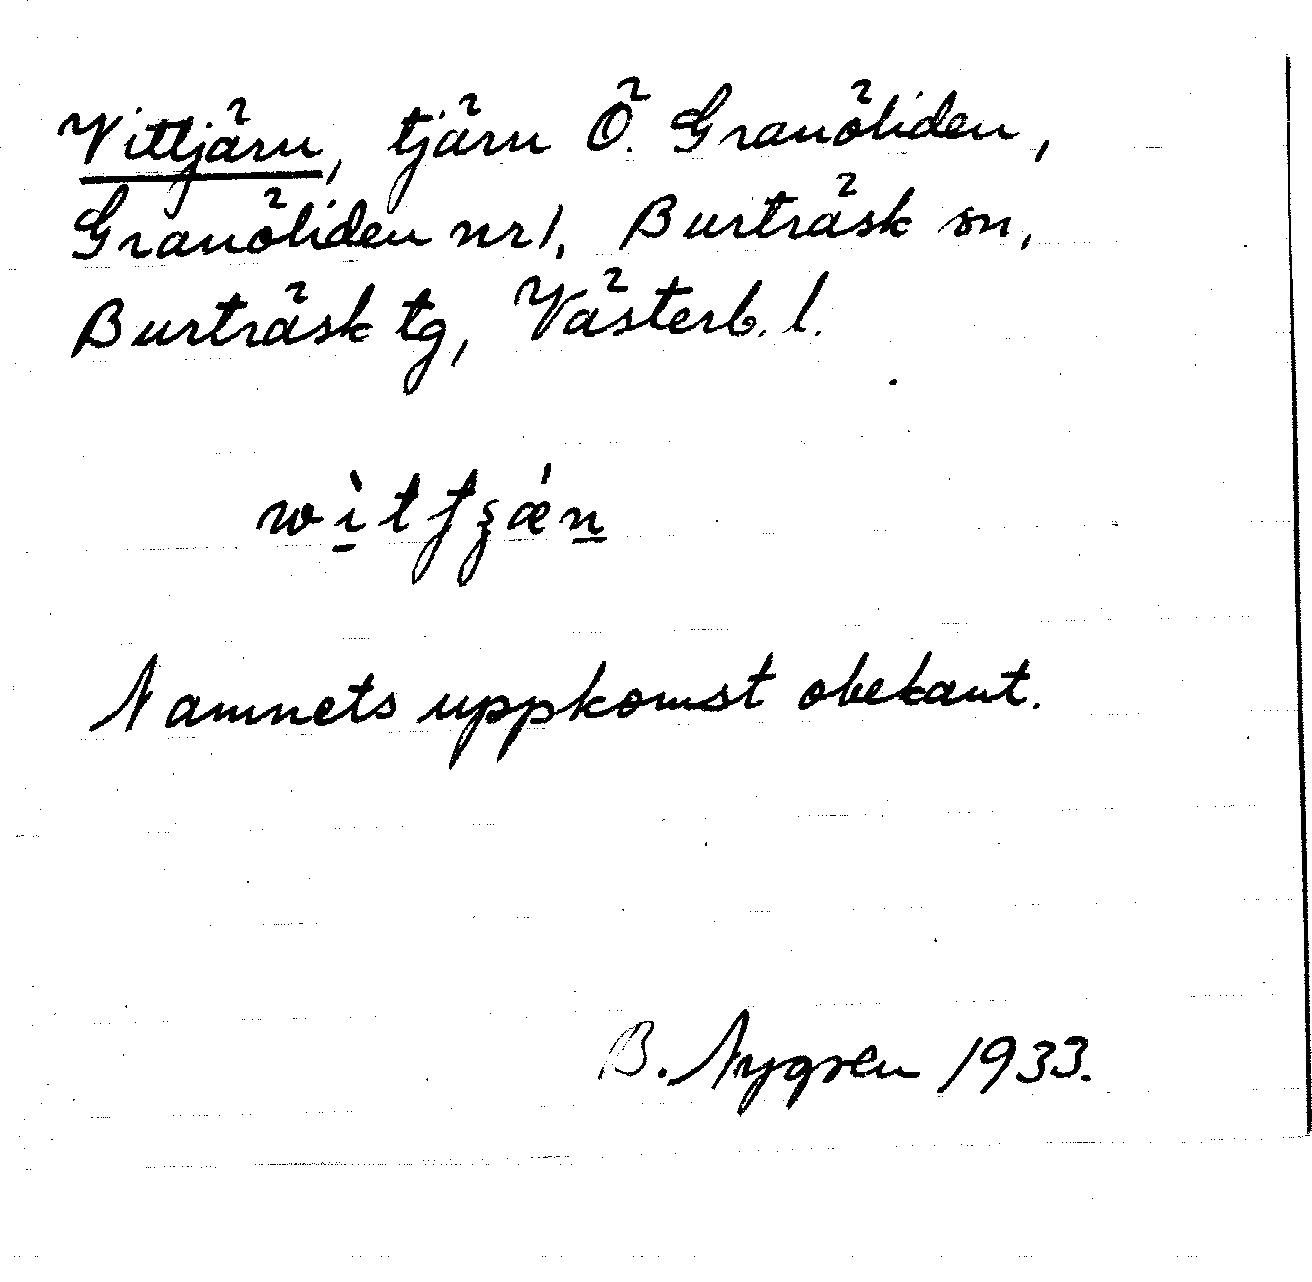 Vittjärn, tjärn Ö. Granöliden,
Granöliden nr 1, Burträsk sn,
Burträsk tg, Västerb. l.
Namnets uppkomst obekant.
B. Nygren 1933.